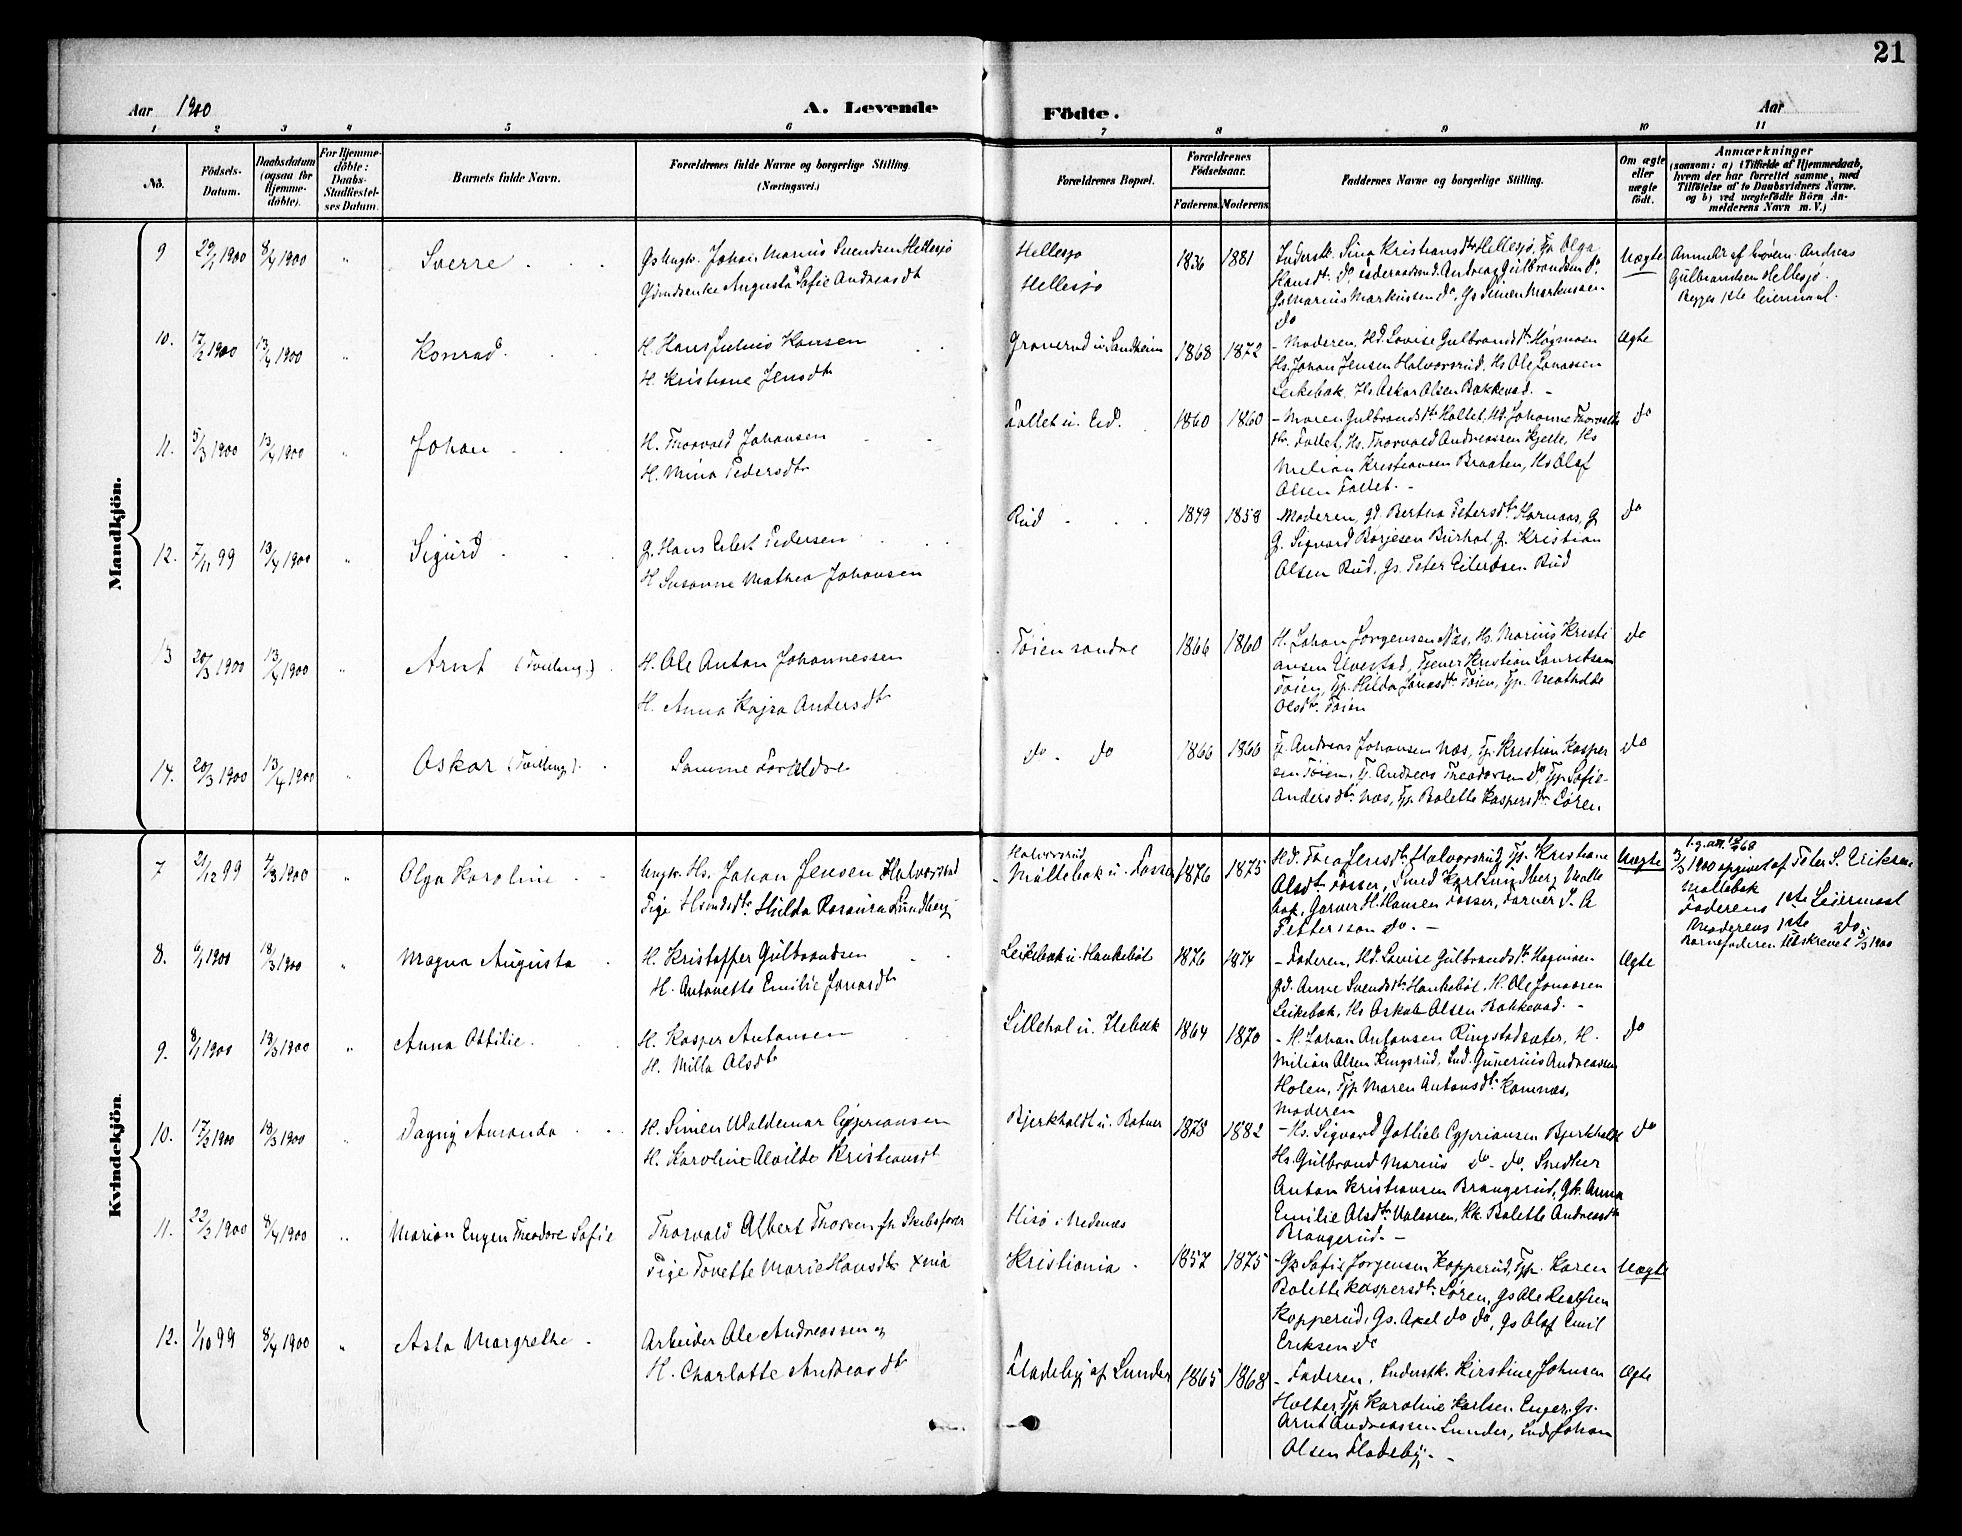 21
Aar 1900
A. Levende
Födte.
Aar
1 2 3 4 5 6 7 8 9 10 11
No.
Födsels-Datum.
Daabsdatum (ogsaa for Hjemme-döbte).
For Hjemme-döbte: Daabs-Stadfæstel-ses Datum.
Barnets fulde Navn.
Forældrenes fulde Navne og borgerlige Stilling. (Næringsvei.)
Forældrenes Bopæl.
Forældrenes Födselsaar.
Faderens. Moderens.
Faddernes Navne og borgerlige Stilling.
Om ægte eller uægte födt.
Anmærkninger
(saasom: a) i Tilfælde af Hjemmedaab, hvem der har forrettet samme, med Tilföielse af to Daabsvidners Navne. og b) ved uægtefödte Börn Anmelderens Navn m. V.)
Mandkjön.
9 29/1 1900 8/4 1900 " Sverre
Gs Ungk. Johan Marius Svendsen Hellesjø
Gaardsenke Augusta Sofie Andreasdt
Hellesjø
Hellesjø
1836 1881
Inderstk. Sina Kristiansdtr Hellesjø, Tp Olga
Hansdtr. do, Andreas Gulbrandsen do.
Gs Marius Markussen do, Gs Simen Markussen
do
Uægte
Anmeldt af Andreas
Gulbrandsen Hellesjø.
Begges 1ste Leiermaal.
10. 17/2 1900 13/4 1900 " Konrad
H. Hans Julius Hansen
H. Kristiane Jensdtr
Graverud u. Sandheim
1868 1872
- Moderen, Hd. Lovise Gulbrandsdtr Høgmoen
Hs. Johan Jensen Halvorsrud, Hs Ole Jonassen
Leikebøk, Hs Oskar Olsen Bakkevad. -
Ægte
11. 5/3 1900 13/4 1900 " Johan
H. Thorvald Johansen
H. Mina Pedersdtr
Fallet u. Eid.
1860 1860
- Maren Gulbrandsdtr Fallet, Hd. Johanne Thorvalds
dtr. Fallet, Hs. Thorvald Andreassen Kjelle, Hs
Milian Kristiansen Braaten, Hs Olaf
Olsen Fallet. -
do
12. 7/11 99 13/4 1900 " Sigurd
G. Hans Eilert Pedersen
H Susanne Mathea Johansen
Rud
1849 1858
- Moderen, gd. Bertha Petersdtr Kornaas, G
G. Sigvard Børjesen Burhol, G. Kristian
Olsen Rud, Gs. Peter Eilertsen Rud
do
13 20/3 1900 13/4 1900 " Arnt (Tvilling.)
H. Ole Anton Johannessen
H. Anna Kajsa Andersdtr
Tøien søndre
1866 1860
H. Johan Jørgensen Næs, Hs. Marius Kristi
ansen Elvestad, Tjener Kristian Lauritsen
Tøien, Tp. Hilda Jonasdtr Tøien, Tp. Mathilde
Olsdtr. Tøien
do
14. 20/3 1900 13/4 1900 " Oskar (Tvilling).
Samme Forældre
do. do
1866 1860
Tj. Andreas Johansen Næs, Tj. Kristian Kasper
sen Tøien, Tj. Andreas Theodorsen do, Tp Sofie
Andersdtr. Næs, Tp. Bolette Kaspersdtr Løren
do
Kvindekjön.
7 21/12 99 4/3 1900 Olga Karoline
Ungk. Hs. Johan Jensen Halvorsrud
Pige Hilda Rosaura Lundberg
Halvorsrud
Møllebøk u. Fosser
1876 1875
Hd. Thea Jensdtr. Halvorsrud, Tp. Kristiane
Olsdtr. Fosser, Smed Karl Lundberg Mølle
bøk, Garver H. Hansen Fosser, Farver J. A
Petterson do. -
Uægte
5/3 1900 opgivet af Peter S. Eriksen
Møllebøk
Faderens 1ste Leiermaal
Moderens 1ste do
Barnefaderen tilskrevet 5/3 1900
8. 6/1 1900 18/3 1900 " Magna Augusta
H. Kristoffer Gulbrandsen
H. Antonette Emilie Jonasdtr
Leikebøk u. Haukebøl
1876 1874
- Faderen, Hd. Lovise Gulbrandsdtr Høgmoen
gd. Anne Svendsdtr Haukebøl, H. Ole Jonassen
Leikebøk, Hs Oskar Olsen Bakkevad. -
Ægte
9. 8/1 1900 18/3 1900 " Anna Ottilie
H. Kasper Antonsen
H. Milla Olsdtr
Lillehol u. Ilebæk
1864 1870
- H. Johan Antonsen Ringstadsæter, H.
Milian Olsen Kingsrud, Ind. Gunerius Andreassen
Holen, Tp Maren Antonsdtr. Kamnæs,
Moderen
do
10. 17/2 1900 18/3 1900 " Dagny Amanda
H. Simen Waldemar Cyprianson
H. Karoline Alvilde Kristiansdtr
Bjerkholdt u. Botner
1878 1882
- Hs. Sigvard Gotlieb Cypriansen Bjerkholt
Hs. Gulbrand Marius do. do. Snedker
Anton Kristiansen Brangerud, Gk. Anna
Emilie Olsdtr. Valsøren, Hk. Bolette Andreasdtr
Brangerud. -
do
11. 22/3 1900 8/4 1900 " Marion Eugen Theodore Sofie
Thorvald Albert Thorsen fh Skibsfører
Pige Tonette Marie Hansdtr Xnia
Hisø i Nedenæs
Kristiania
1857 1875
- Gp Sofie Jørgensen Kopperud, Tp. Karen
Bolette Kaspersdtr. Løren, Gs Ole
Kopperud, Gs. Axel do do, Gs Olaf Emil
Eriksen do
Uægte
12. 1/10 99 8/4 1900 " Asta Margrethe
Arbeider Ole Andreassen og
H. Charlotte Andreasdtr
Fladeby af Lunder
1865 1868
- Faderen, Inderstk. Kirstine Johnsen
Holter, Tp Karoline Karlsen Enger, Gs.
Arnt Andreassen Lunder, Ind Johan
Olsen Fladeby. -
Ægte